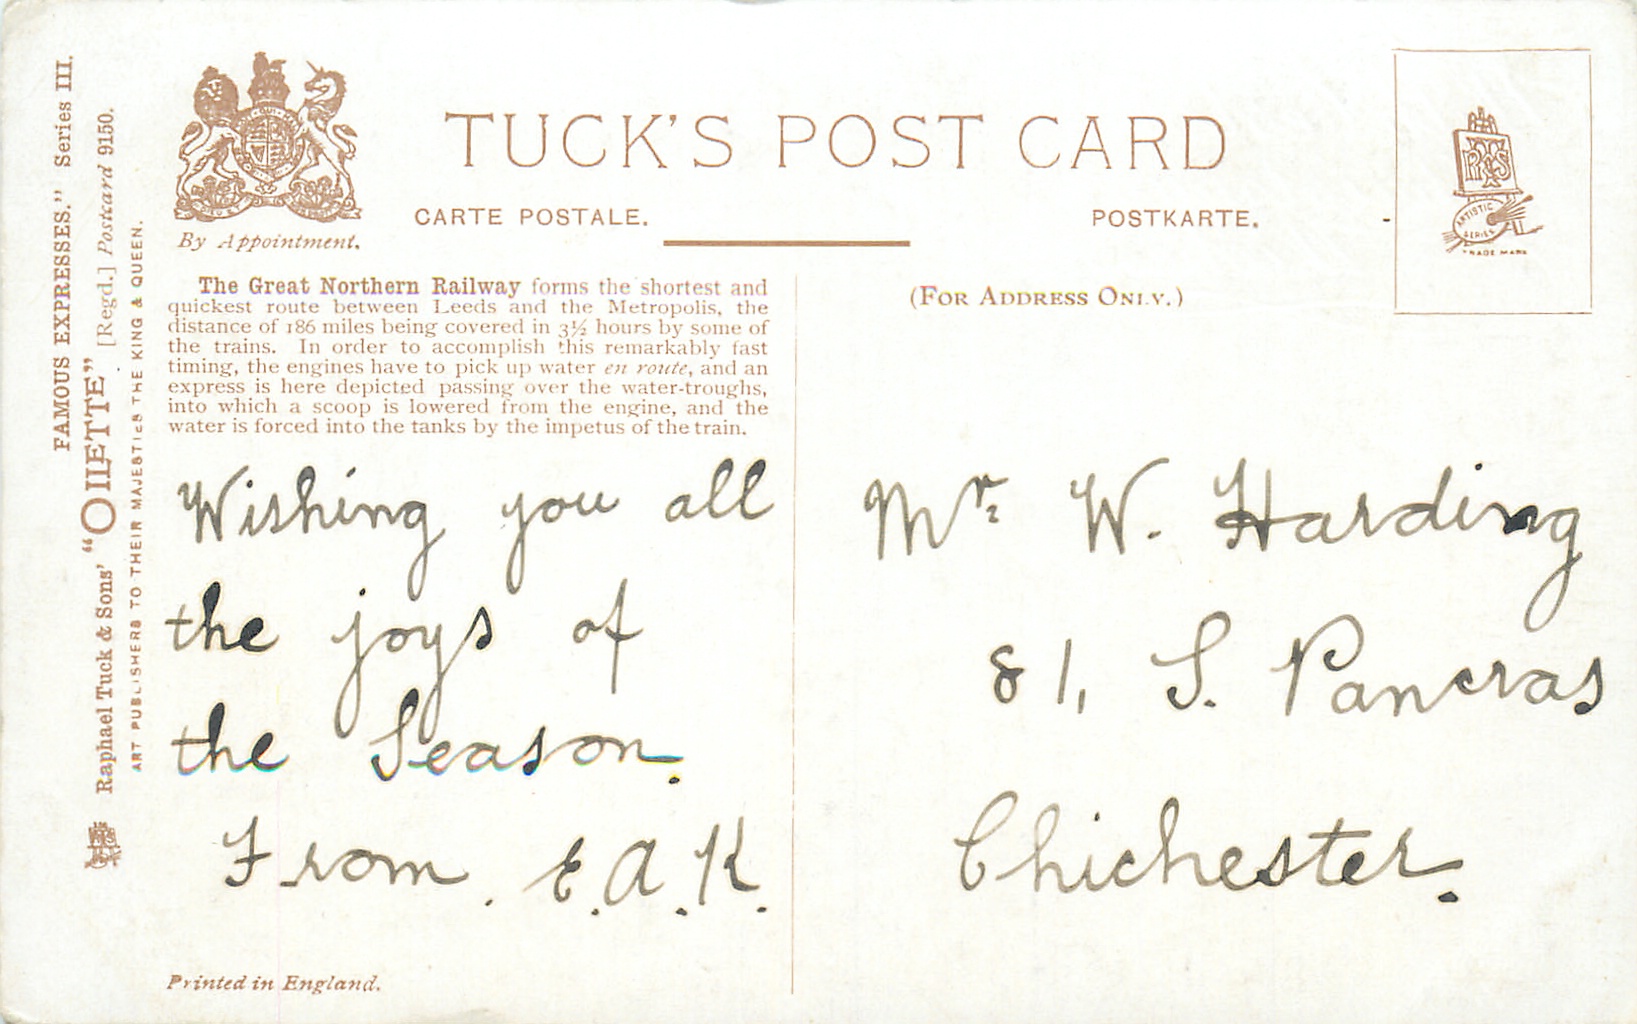 FAMOUS EXPRESSES." Series III.
Raphael Tuck & Sons' "OILETTE" [Regd.] Postcard 9150.
ART PUBLISHERS TO THEIR MAJESTIES THE KING & QUEEN.
By Appointment.
TUCK'S POST CARD
CARTE POSTALE.
POSTKARTE.
ARTISTIC
SERIES
TRADE MARK
(FOR ADDRESS ONLY.)
The Great Northern Railway forms the shortest and
quickest route between Leeds and the Metropolis, the
distance of 186 miles being covered in 3½ hours by some of
the trains. In order to accomplish this remarkably fast
timing, the engines have to pick up water en route, and an
express is here depicted passing over the water-troughs,
into which a scoop is lowered from the engine, and the
water is forced into the tanks by the impetus of the train.
Wishing you all
the joys of
the Season.
From. E.A.K.
Mr. W. Harding
81, S. Pancras
Chichester.
Printed in England.